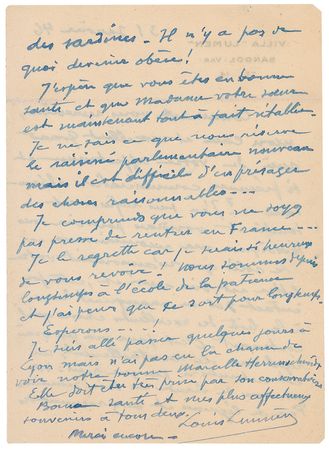 des sardines - Il n'y a pas de
quoi devenir obèse!
J'espère que vous êtes en bonne
santé et que Madame votre sœur
est maintenant tout à fait rétablie.
Je ne sais ce que nous réserve
le régime parlementaire nouveau
mais il est difficile d'en présager
des choses raisonnables ---
Je comprends que vous ne soyez
pas pressé de rentrer en France ---
Je le regrette car je serais si heureux
de vous revoir! Nous sommes depuis
longtemps à l'école de la patience
et j'ai peur que ce soit pour longtemps.
Espérons - - - !
Je suis allé passer quelques jours à
Lyon mais n'ai pas eu la chance de
voir notre bonne Marcelle
Elle doit être très prise par son conservatoire
Bonne santé et mes plus affectueux
souvenirs à tous deux.
Louis Lumière
Merci encore -
VILLA LUMEN
BANDOL VAR